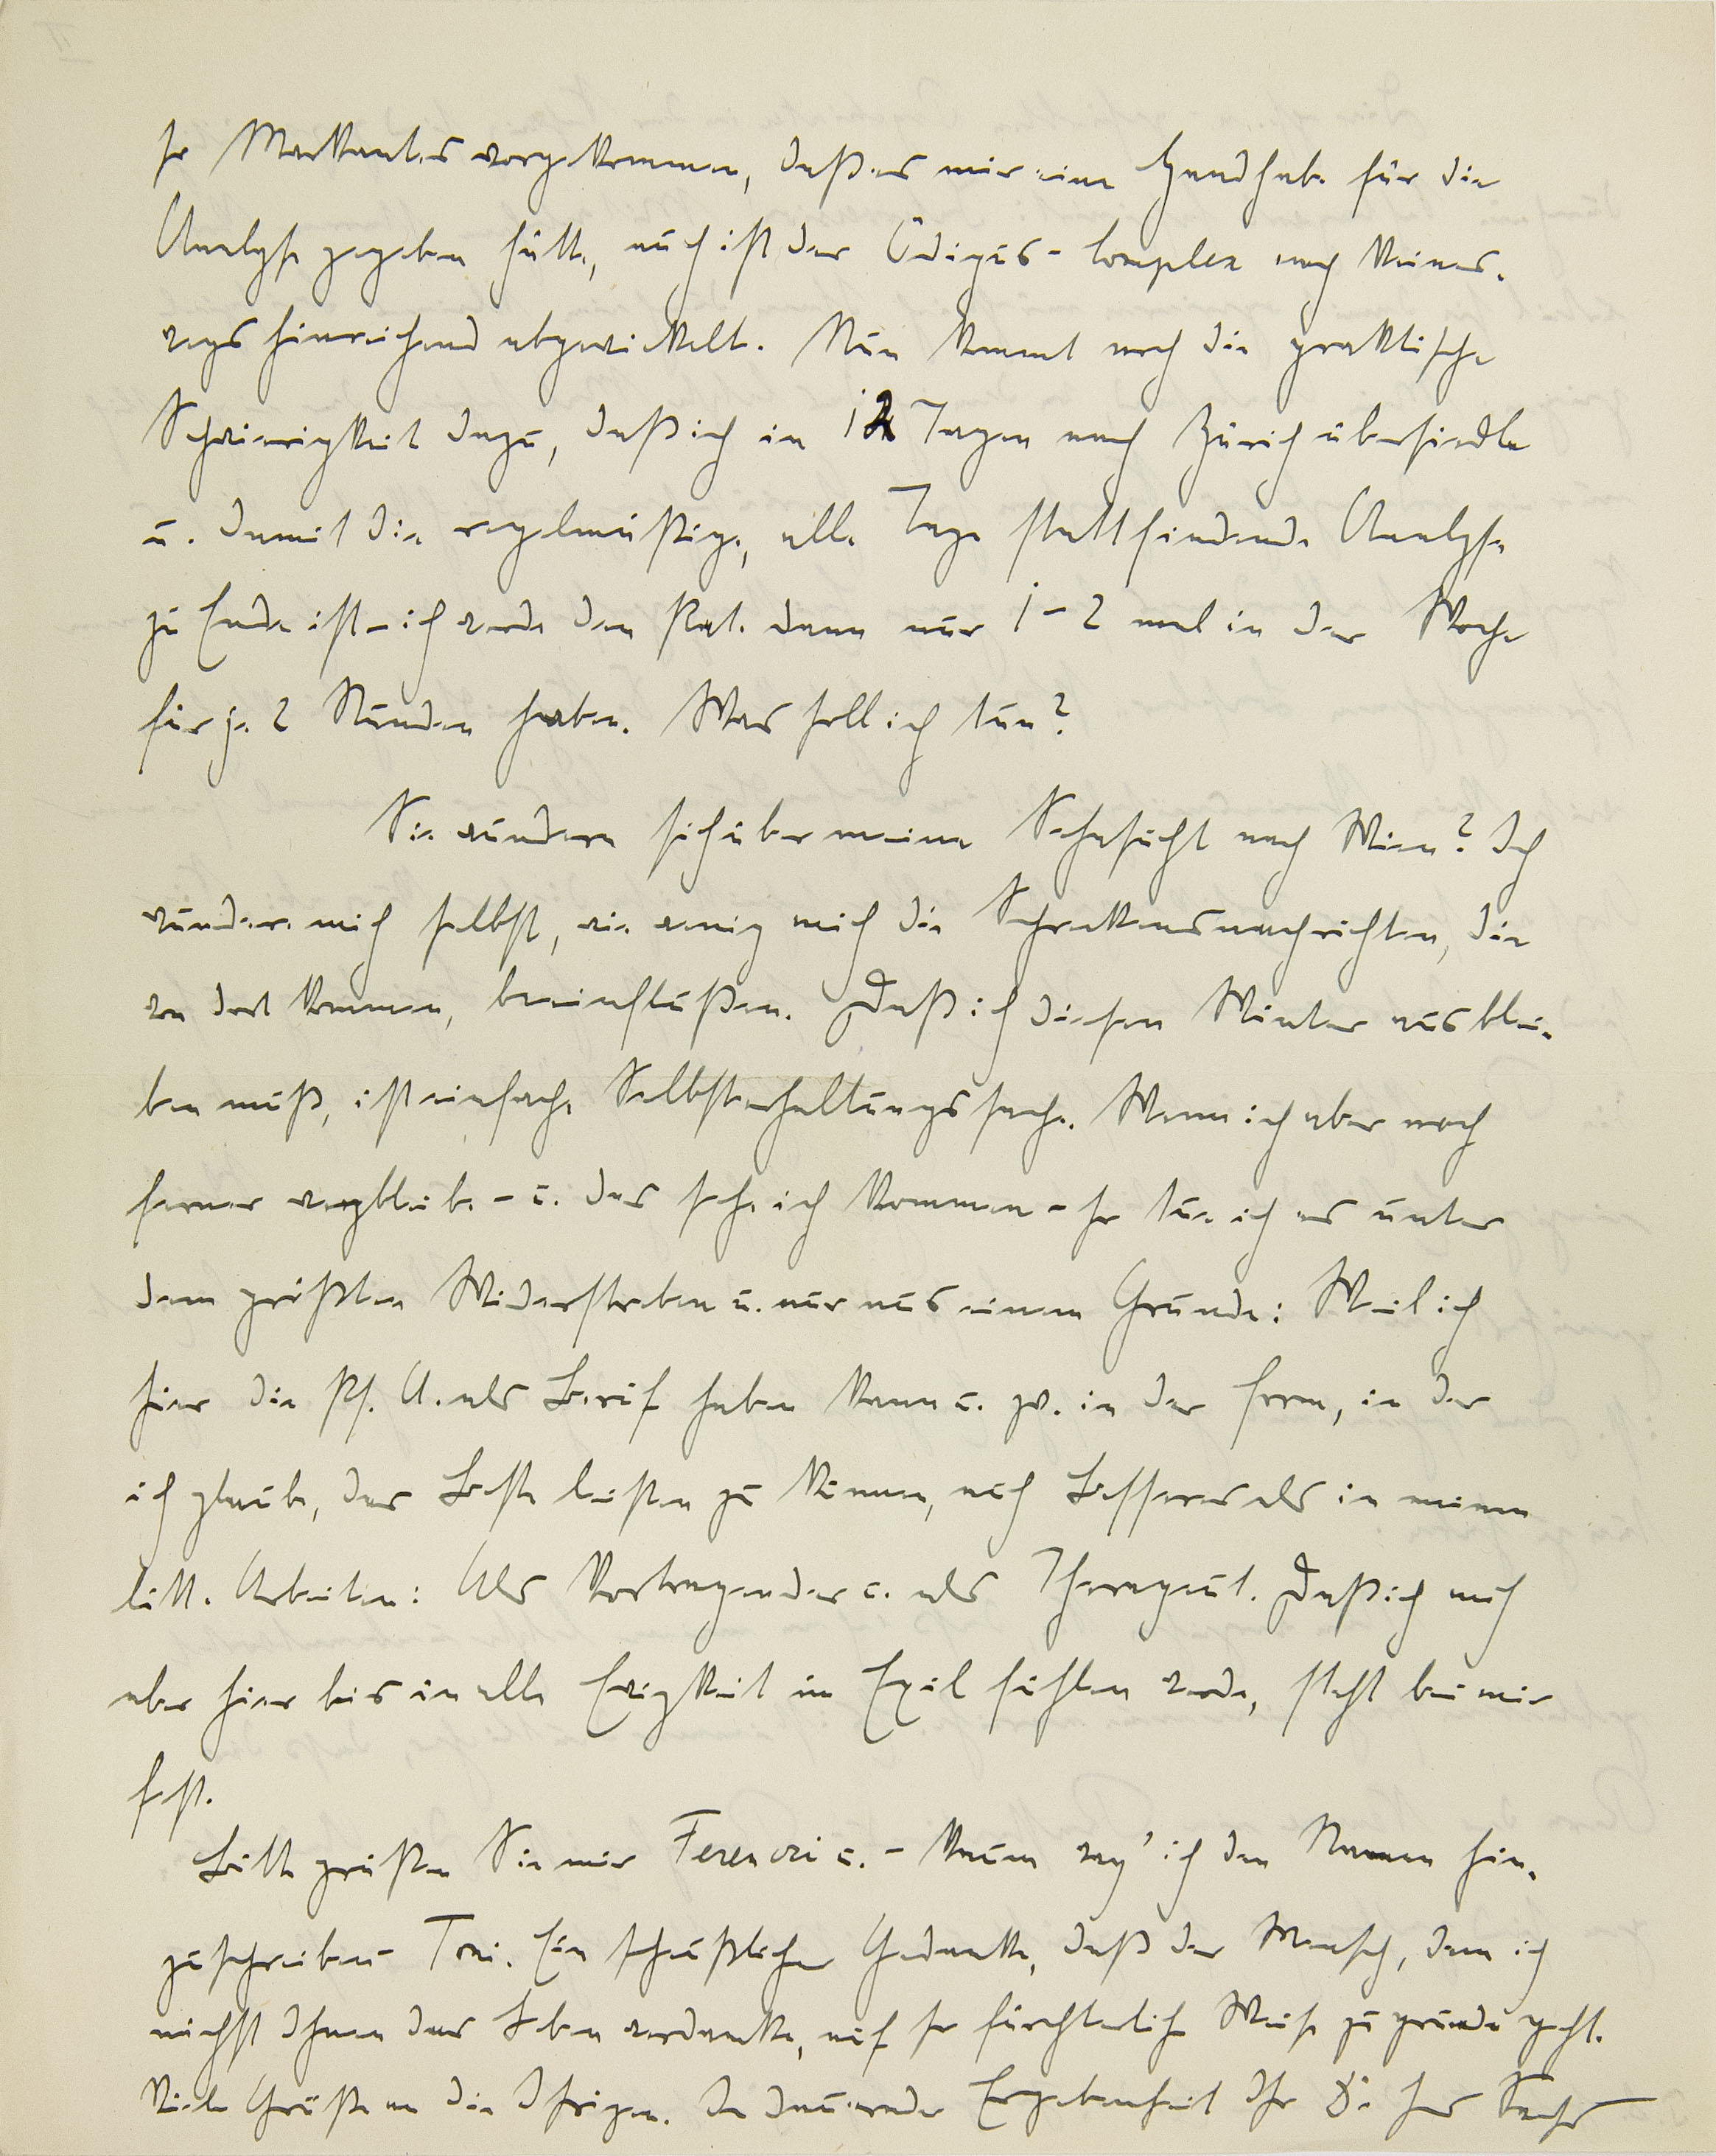 so Markantes vorgekommen, daß es mir eine Handhabe für die
Analyse gegeben hätte, auch ist der Ödipus-Complex noch keines-
wegs hinreichend abgewickelt. Nun kommt noch die praktische
Schwierigkeit dazu, daß ich in 12 Tagen nach Zürich übersiedle
u. damit die regelmäßige, alle Tage stattfindende Analyse
zu Ende ist – ich werde den Pat. dann nur 1–2 mal in der Woche
für je 2 Stunden haben. Was soll ich tun?
Sie wundern sich über meine Sehnsucht nach Wien? Ich
wundere mich selbst, wie wenig mich die Schreckensnachrichten, die
von dort kommen, beeinflußen. Daß ich diesen Winter ausblei-
ben muß, ist einfache Selbsterhaltungssache. Wenn ich aber noch
ferner wegbleibe – u. das sehe ich kommen – so tue ich es unter
dem größten Widerstreben u. nur aus einem Grunde: Weil ich
hier die Ps. A. als Beruf haben kann u. zw. in der Form, in der
ich glaube, das Beste leisten zu können, auch Besseres als in meinen
litt. Arbeiten: Als Vortragender u. als Therapeut. Daß ich mich
aber hier bis in alle Ewigkeit im Exil fühlen werde, steht bei mir
fest.
Bitte grüßen Sie mir Ferenczi u. – kaum wag' ich den Namen hin-
zuschreiben – Toni. Ein scheußlicher Gedanke, daß der Mensch, dem ich
nächst Ihnen das Leben verdanke, auf so fürchterliche Weise zu grunde geht.
Viele Grüße an die Ihrigen. In dauernder Ergebenheit Ihr Dr Hans Sachs